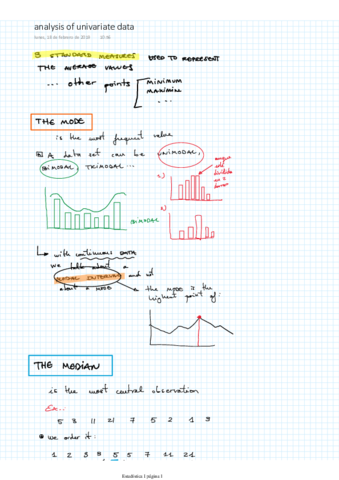 analysis of univariate data
lunes, 16 de febrero de 2026 10:46
3 STANDARD MEASURES USED TO REPRESENT
THE AVERAGE VALUES
... other points
MINIMUM
MAXIMUM
...
THE MODE
is the most frequent value
A data set can be UNIMODAL,
BIMODAL, TRIMODAL ...
aunque
esté
dividida
en 2
barras
1)
2)
BIMODAL
with continuous DATA
we talk about a
MODAL INTERVAL and not
about a MODE
the MODE is the
highest point of:
THE MEDIAN
is the most central observation
Ex.:
5 3 11 21 7 5 2 1 3
we order it:
1 2 3 3 5 5 7 11 21
Estadística 1 página 1